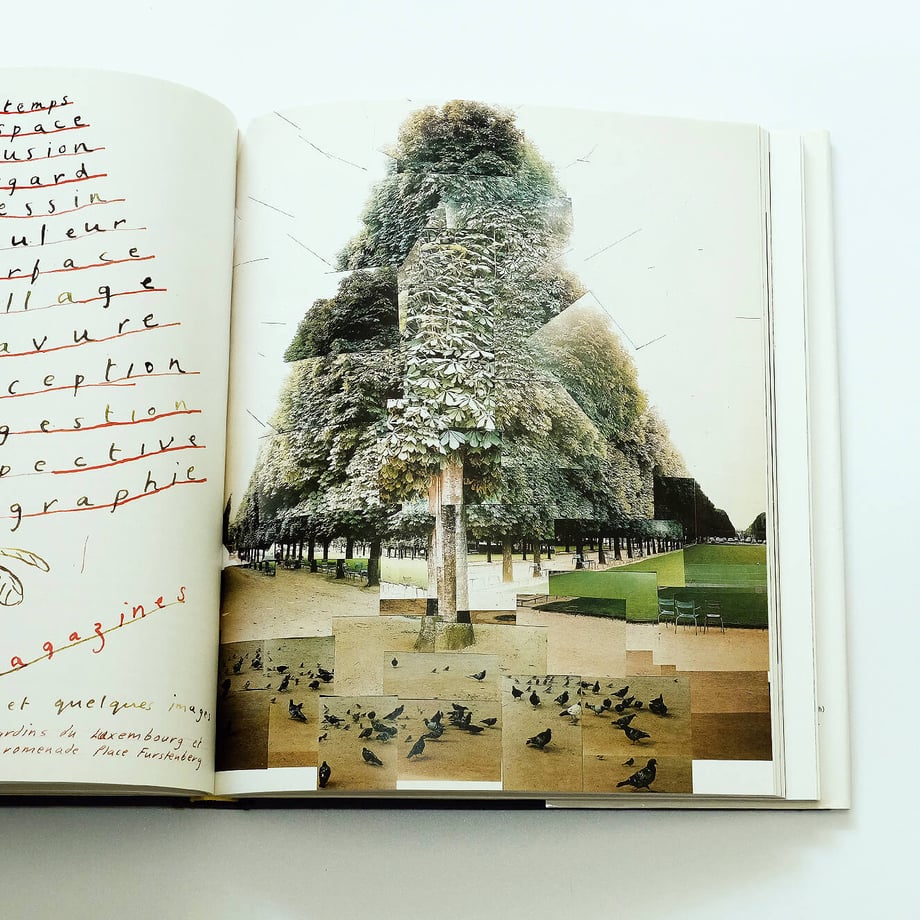 temps
space
usion
gard
essin
uleur
rface
llage
avure
ception
gestion
pective
ographie
agazines
et quelques images
ardins du Luxembourg et
romenade Place Furstenberg